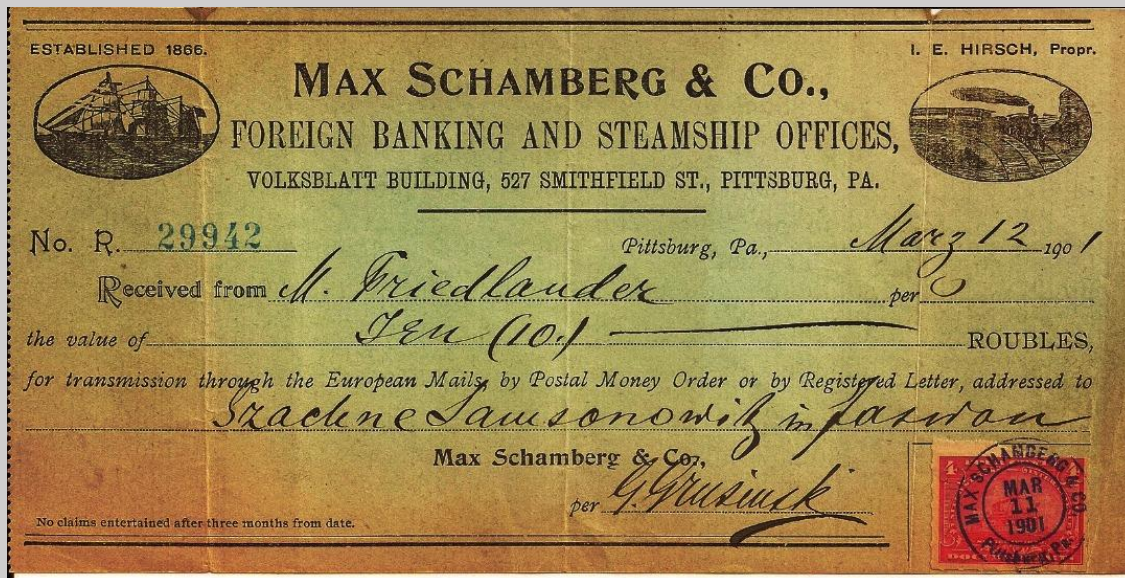 ESTABLISHED 1866.
I. E. HIRSCH, Propr.
MAX SCHAMBERG & CO.,
FOREIGN BANKING AND STEAMSHIP OFFICES,
VOLKSBLATT BUILDING, 527 SMITHFIELD ST., PITTSBURG, PA.
No. R. 29942 Pittsburg, Pa., Marz 12 1901
Received from M. Friedlander per
the value of Ten (10.) ROUBLES,
for transmission through the European Mails, by Postal Money Order or by Registered Letter, addressed to
Szachne Samsonowitz in Jaswon
Max Schamberg & Co.,
per G. Grusinsk
No claims entertained after three months from date.
4
MAX SCHAMBERG & CO
MAR
11
1901
Pittsburg, Pa.